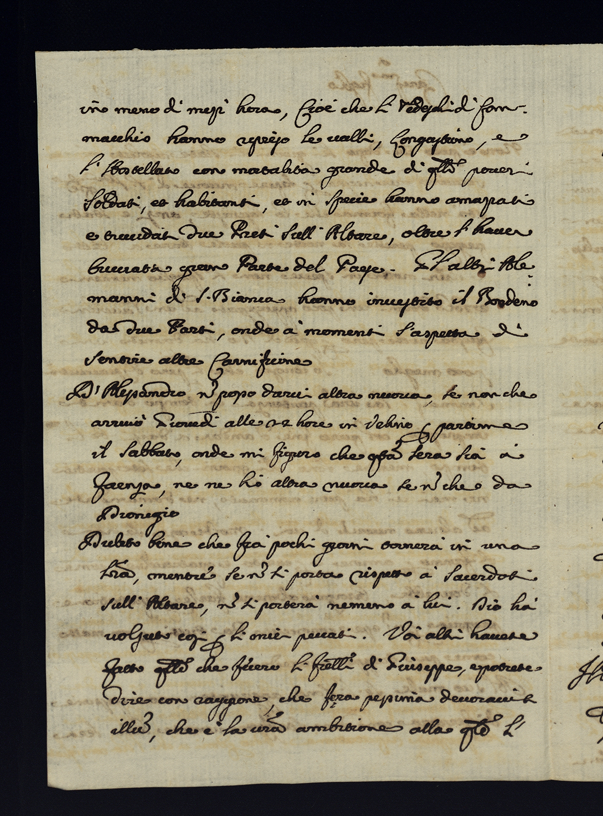 in meno di mezz hora, Cioè che li Tedeschi di Com-
macchio hanno ripreso le valli, Longastrino, e
l'Hostellato con mortalità grande di qlli poveri
Soldati, et habitanti, et in specie hanno amazzati
e trucidati due Preti sull'Altare, oltre l'haver
bruciata gran Parte del Paese. Gl'altri Ale
manni di S. Bianca hanno investito il Bondeno
da due Parti, onde a momenti s'aspetta di
sentire altre Carnificine
D'Alessandro nō posso darvi altra nuova, se non che
arrivò Giovedì alle 24 hore in , partirne
il Sabbato, onde mi figuro che qta sera sia a
Faenza, ne ne ho altra nuova se nō che da
Dionigio
Dubito bene che frà pochi giorni tornerà in una
, mentre se nō si porta rispetto a Sacerdoti
sull'Altare, nō si porterà nemeno a lui. Dio hà
volsuto così p li miei peccati. Voi altri havete
fatto qllo che fecero li flli di Giuseppe, e potrete
dire con raggione, che fera pessima devoravit
illū, che è la vrā ambitione alla qle li